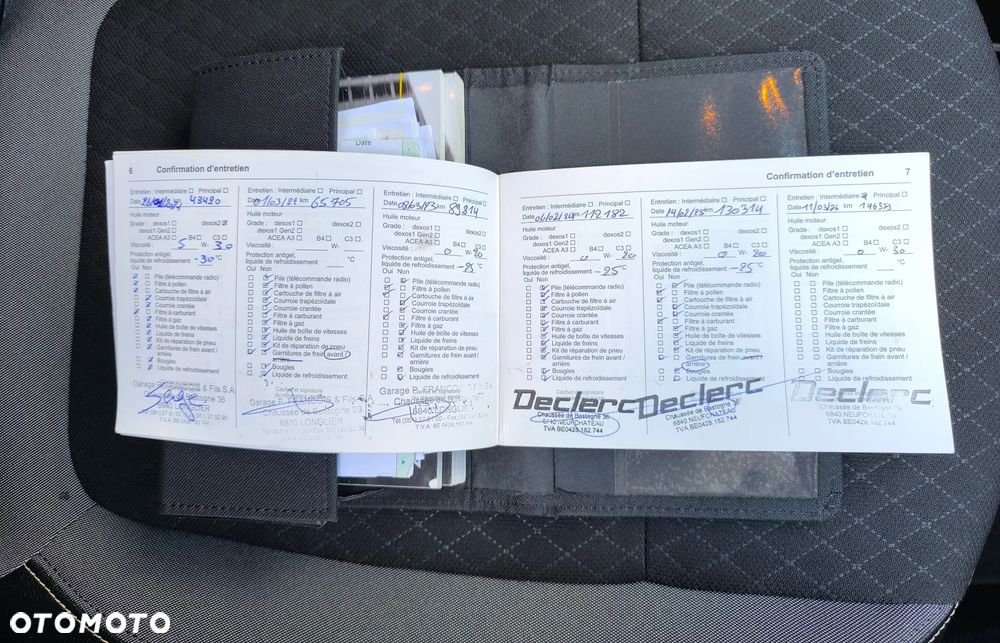 Date
6 Confirmation d'entretien
Entretien : Intermédiaire Principal
Date 43480
Huile moteur
Grade : dexos1 dexos2
dexos1 Gen2
ACEA A3 B4 C3
Viscosité : 5 W- 30
Protection antigel,
liquide de refroidissement -30 °C
Oui Non
Pile (télécommande radio)
Filtre à pollen
Cartouche de filtre à air
Courroie trapézoïdale
Courroie crantée
Filtre à carburant
Filtre à gaz
Huile de boîte de vitesses
Liquide de freins
Kit de réparation de pneu
Garnitures de frein avant /
arrière
Bougies
Liquide de refroidissement
& Fils S.A.
36
LONGLIER
Entretien : Intermédiaire Principal
Date 01/03/22 km 65705
Huile moteur
Grade : dexos1 dexos2
dexos1 Gen2
ACEA A3 B4 C3
Viscosité : W-
Protection antigel,
liquide de refroidissement °C
Oui Non
Pile (télécommande radio)
Filtre à pollen
Cartouche de filtre à air
Courroie trapézoïdale
Courroie crantée
Filtre à carburant
Filtre à gaz
Huile de boîte de vitesses
Liquide de freins
Kit de réparation de pneu
Garnitures de frein avant /
arrière
Bougies
Liquide de refroidissement
Cachet et signature
& Fils S.A.
Chaussée de Bastogne 36
6840 LONGLIER
Entretien : Intermédiaire Principal
Date 08/03/23 km 89814
Huile moteur
Grade : dexos1 dexos2
dexos1 Gen2
ACEA A3 B4 C3
Viscosité : 0 W- 20
Protection antigel,
liquide de refroidissement -25 °C
Oui Non
Pile (télécommande radio)
Filtre à pollen
Cartouche de filtre à air
Courroie trapézoïdale
Courroie crantée
Filtre à carburant
Filtre à gaz
Huile de boîte de vitesses
Liquide de freins
Kit de réparation de pneu
Garnitures de frein avant /
arrière
Bougies
Liquide de refroidissement
6840 LONGLIER
Confirmation d'entretien 7
Entretien : Intermédiaire Principal
Date 06/02/24 km 112182
Huile moteur
Grade : dexos1 dexos2
dexos1 Gen2
ACEA A3 B4 C3
Viscosité : 0 W- 20
Protection antigel,
liquide de refroidissement -25 °C
Oui Non
Pile (télécommande radio)
Filtre à pollen
Cartouche de filtre à air
Courroie trapézoïdale
Courroie crantée
Filtre à carburant
Filtre à gaz
Huile de boîte de vitesses
Liquide de freins
Kit de réparation de pneu
Garnitures de frein avant /
arrière
Bougies
Liquide de refroidissement
Cachet et signature
Declerc
Chaussée de Bastogne 36
6840 NEUFCHATEAU
TVA BE0428.182.744
Entretien : Intermédiaire Principal
Date 24/02/25 km 130314
Huile moteur
Grade : dexos1 dexos2
dexos1 Gen2
ACEA A3 B4 C3
Viscosité : 0 W- 20
Protection antigel,
liquide de refroidissement -25 °C
Oui Non
Pile (télécommande radio)
Filtre à pollen
Cartouche de filtre à air
Courroie trapézoïdale
Courroie crantée
Filtre à carburant
Filtre à gaz
Huile de boîte de vitesses
Liquide de freins
Kit de réparation de pneu
Garnitures de frein avant /
arrière
Bougies
Liquide de refroidissement
Declerc
Chaussée de Bastogne 36
6840 NEUFCHATEAU
TVA BE0428.182.744
Entretien : Intermédiaire Principal
Date 11/03/26 km
Huile moteur
Grade : dexos1 dexos2
dexos1 Gen2
ACEA A3 B4 C3
Viscosité : 0 W- 20
Protection antigel,
liquide de refroidissement °C
Oui Non
Pile (télécommande radio)
Filtre à pollen
Cartouche de filtre à air
Courroie trapézoïdale
Courroie crantée
Filtre à carburant
Filtre à gaz
Huile de boîte de vitesses
Liquide de freins
Kit de réparation de pneu
Garnitures de frein avant /
arrière
Bougies
Liquide de refroidissement
Declerc
Chaussée de Bastogne 36
6840 NEUFCHATEAU
TVA BE0428.182.744
OTOMOTO